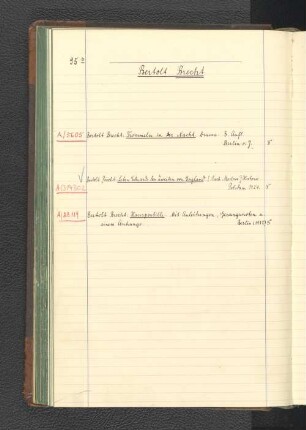 95
Bertolt Brecht
A/5605 Bertolt Brecht. Trommeln in der Nacht. Drama. 3. Aufl.
Berlin o. J. 5
Bertolt Brecht. Leben Eduards des Zweiten von England
Potsdam 1924. 5
Bertolt Brecht. Hauspostille. Mit Anleitungen, Gesangsnoten u.
einem Anhange. Berlin 5